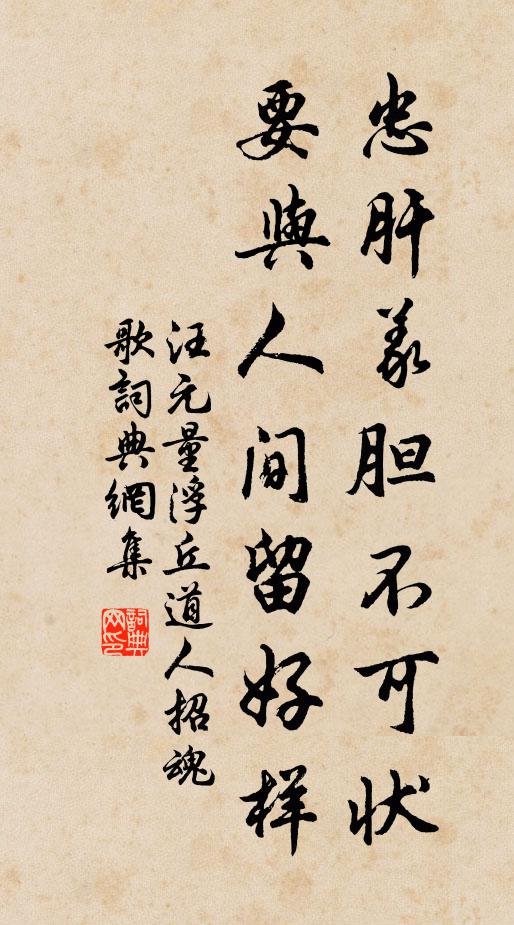 忠肝义胆不可状
要與人间留好样
汪元量浮丘道人招魂
歌詞典網集
詞典网印